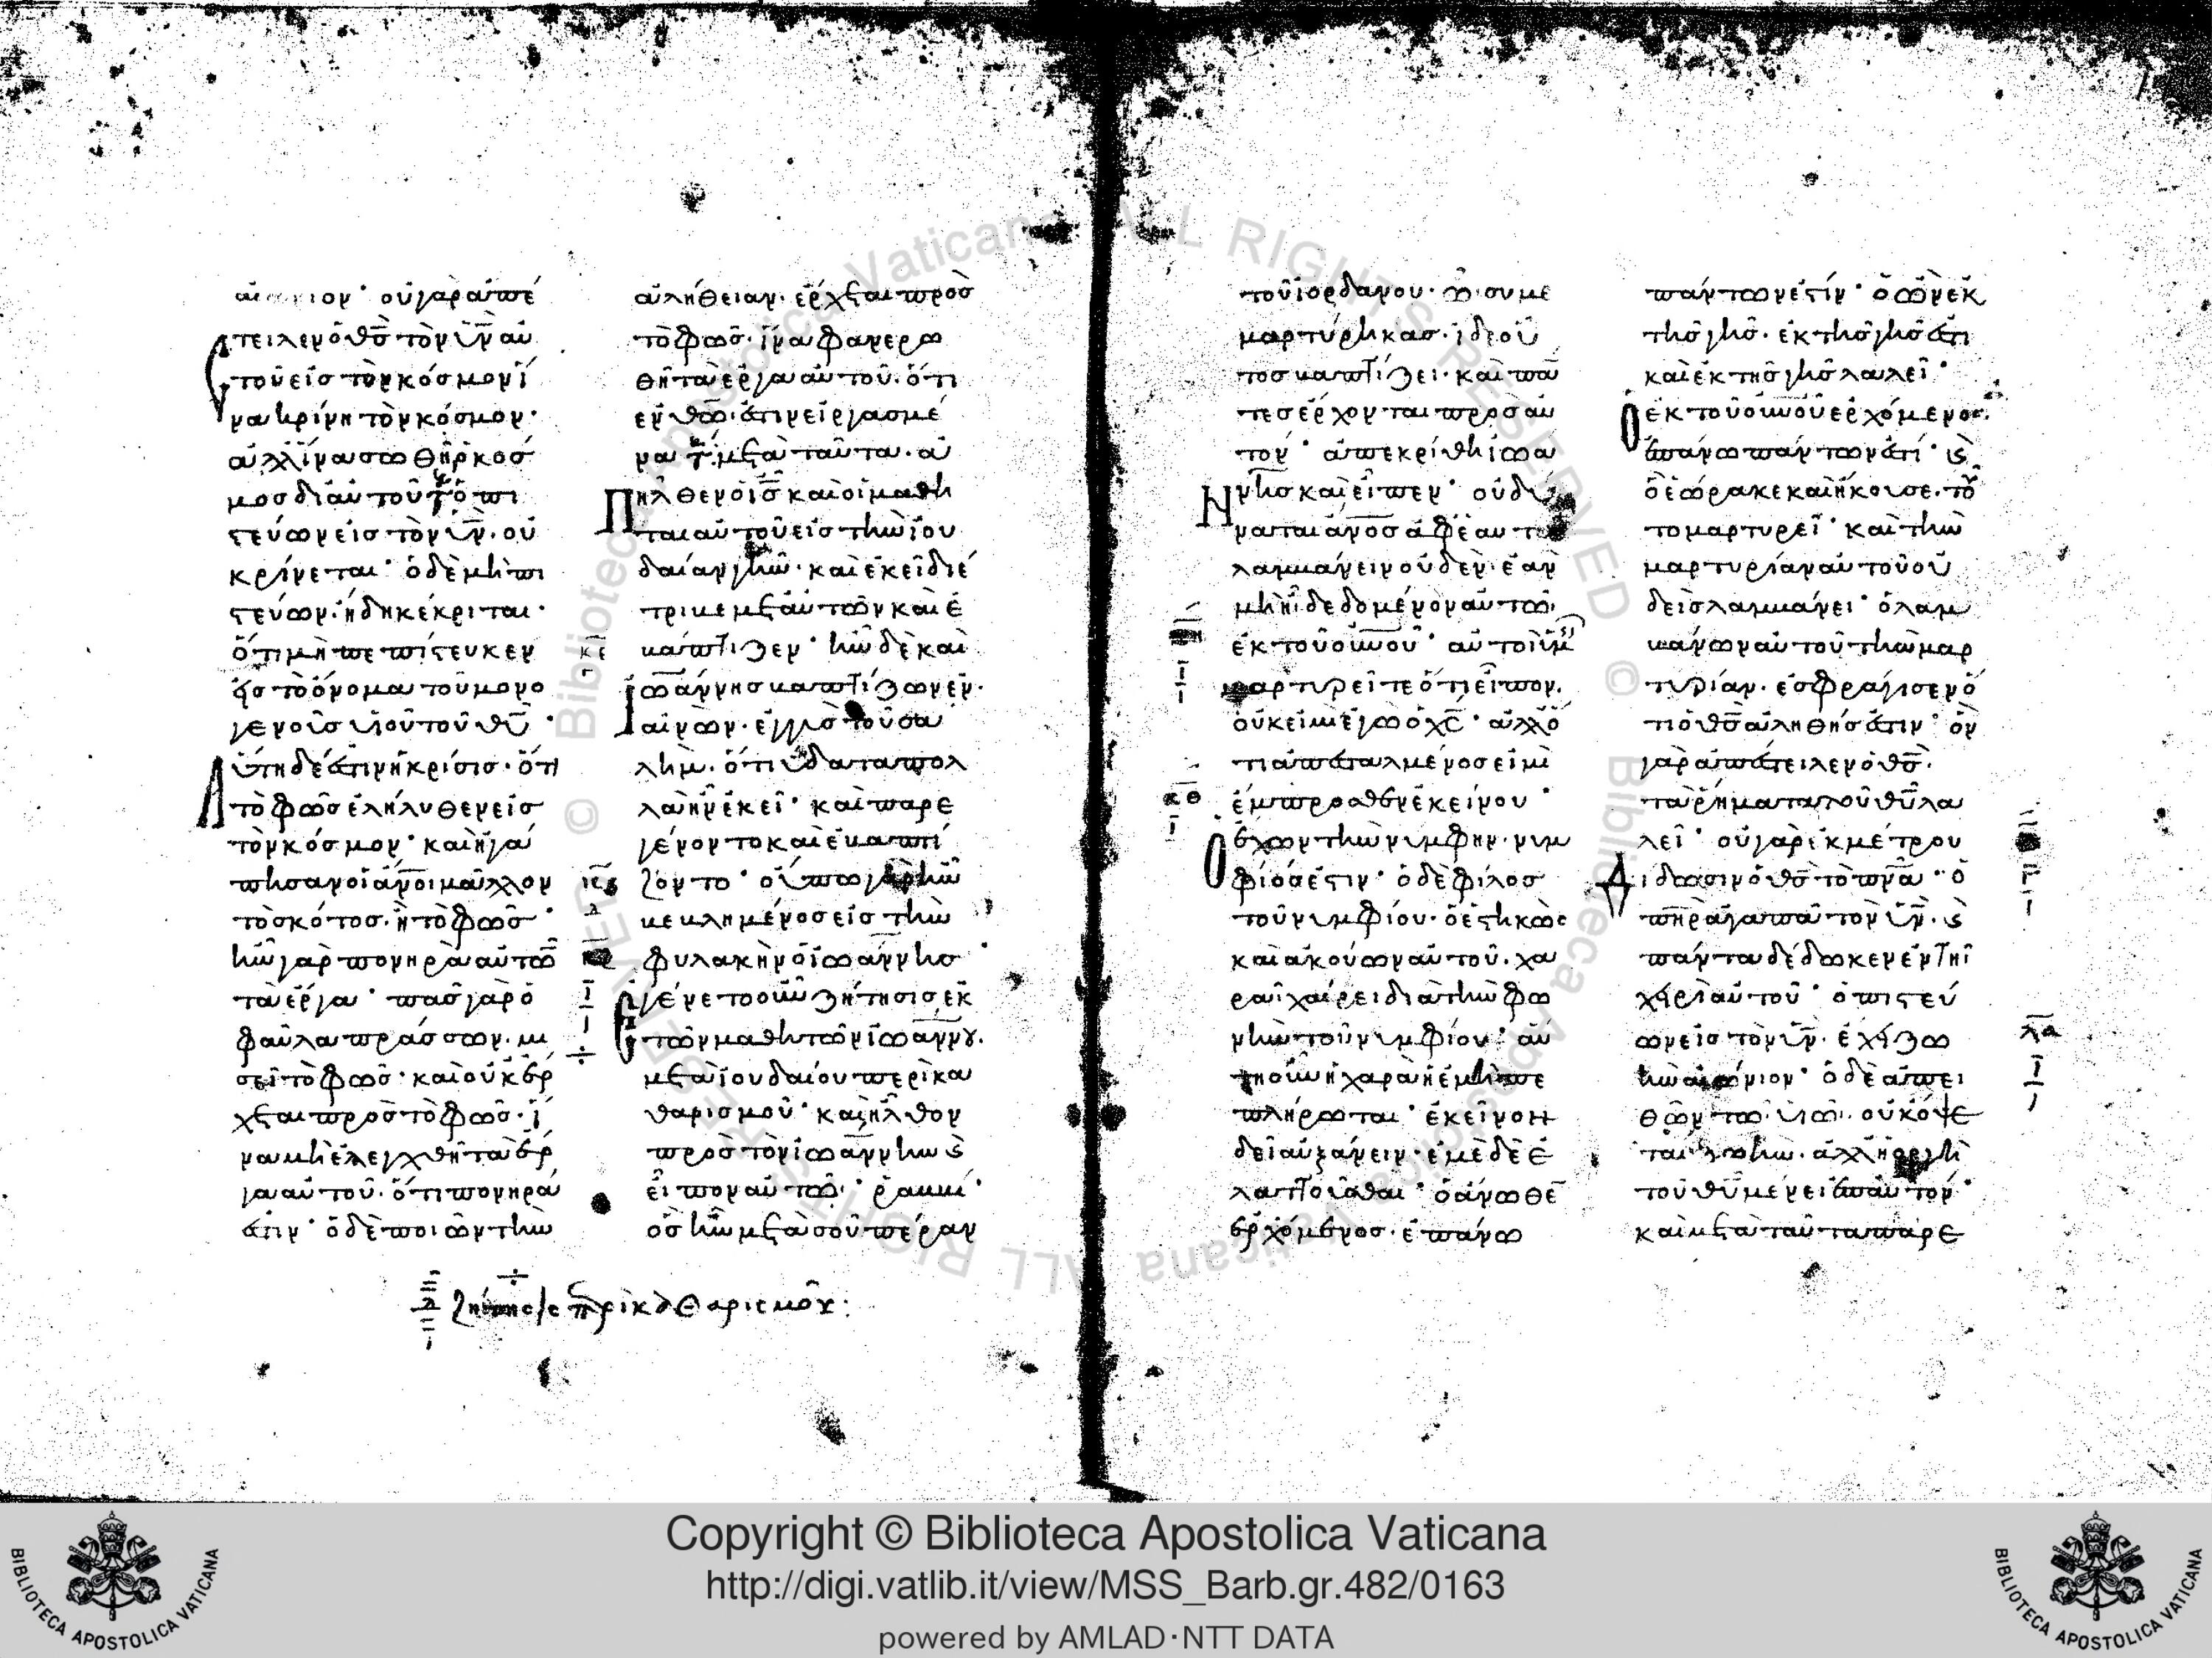 αἰώνιον· οὐ γὰρ ἀπέ
στειλεν ὁ θς τὸν υν αὐ
τοῦ εἰς τὸν κόσμον ἵ
να κρίνη τὸν κόσμον·
ἀλλ ἵνα σωθῆ ὁ κόσ
μος δι αὐτοῦ ὁ πι
στεύων εἰς τὸν υν. οὐ
κρίνεται· ὁ δὲ μὴ πι
στεύων. ἤδη κέκριται·
ὅτι μὴ πεπίστευκεν
εἰς τὸ ὄνομα τοῦ μονο
γενοῦς υἱοῦ τοῦ θυ·
Αὕτη δέ ἐστιν ἡ κρίσις· ὅτι
τὸ φῶς ἐλήλυθεν εἰς
τὸν κόσμον· καὶ ἠγά
πησαν οἱ ἄνοι μᾶλλον
τὸ σκότος. ἢ τὸ φῶς·
ἦν γὰρ πονηρὰ αὐτῶ
τὰ ἔργα· πᾶς γὰρ ὁ
φαῦλα πράσσων. μι
σεῖ τὸ φῶς· καὶ οὐκ ἔρ
χεται πρὸς τὸ φῶς· ἵ
να μὴ ἐλεγχθῆ τὰ ἔρ
γα αὐτοῦ. ὅτι πονηρά
ἐστιν· ὁ δὲ ποιῶν τὴν
ἀλήθειαν. ἔρχεται πρὸσ
τὸ φῶς. ἵνα φανερω
θῆ τὰ ἔργα αὐτοῦ. ὅτι
ἐν θω. ἐστιν εἰργασμέ
να μετὰ ταῦτα. ἀ
πῆλθεν ὁ ις καὶ οἱ μαθη
ταὶ αὐτοῦ εἰς τὴν ἰου
δαίαν γῆν. καὶ ἐκεῖ διέ
τριβε μετ αὐτῶν καὶ ἐ
κε βάπτιζεν· ἦν δὲ καὶ
ἰωάννης βαπτίζων ἐν.
αἰνὼν. ἐγγὺς τοῦ σα
λήμ. ὅτι ὕδατα πολ
λὰ ἦν ἐκεῖ· καὶ παρε
γένοντο καὶ ἐβαπτί
κς ζοντο· οὔπω γὰρ ἦν
βεβλημένος εἰς τὴν
φυλακὴν ὁ ἰωάννησ
Ἐγένετο οὖν ζήτησις ἐκ
τῶν μαθητῶν ἰωάννου.
μετὰ ἰουδαίου περὶ κα
θαρισμοῦ· καὶ ἦλθον
πρὸς τὸν ἰωάννην κ
εἶπον αὐτῶ· ῥαββί·
ὃς ἦν μετὰ σοῦ πέραν
ζητήσεως περὶ καθαρισμοῦ:
τοῦ ἰορδάνου. ὧ συ με
μαρτύρηκας. ἴδε οὗ
τος βαπτίζει. καὶ πά
τες ἔρχονται πρὸς αὐ
τόν· ἀπεκρίθη ἰωά
νης καὶ εἶπεν· οὐ δύ
ναται ἄνος ἀφ ἑαυτοῦ
λαμβάνειν οὐδὲν. ἐὰν
μὴ ἦ δεδομένον αὐτῶ.
ἐκ τοῦ οὐνου· αὐτοὶ ὑμ
μαρτυρεῖτε ὅτι εἶπον.
οὐκ εἰμὶ ἐγὼ ὁ χς· ἀλλ ὅ
κθ τι ἀπεσταλμένος εἰμὶ
ἔμπροσθεν ἐκείνου·
Ὁ ἔχων τὴν νύμφην. νυμ
φίος ἐστιν· ὁ δὲ φίλος
τοῦ νυμφίου. ὁ ἑστηκὼς
καὶ ἀκούων αὐτοῦ. χα
ρᾶ χαίρει διὰ τὴν φω
νὴν τοῦ νυμφίου· αὕ
τη οὖν ἡ χαρὰ ἡ ἐμὴ πε
πλήρωται· ἐκεῖνον
δεῖ αὐξάνειν. ἐμὲ δὲ ἐ
λαττοῦσθαι· ὁ ἄνωθε
ἐρχόμενος. ἐπάνω
πάντων ἐστίν· ὁ ὢν ἐκ
τῆς γῆς. ἐκ τῆς γῆς ἐστι
καὶ ἐκ τῆς γῆς λαλεῖ·
Ὁ ἐκ τοῦ οὐνου ἐρχόμενος.
ἐπάνω πάντων ἐστί· κ
ὃ ἑώρακε καὶ ἤκουσε. τοῦ
το μαρτυρεῖ· καὶ τὴν
μαρτυρίαν αὐτοῦ οὐ
δεὶς λαμβάνει· ὁ λαμ
βάνων αὐτοῦ τὴν μαρ
τυρίαν. ἐσφράγισεν ὅ
τι ὁ θς ἀληθής ἐστιν· ὃν
γὰρ ἀπέστειλεν ὁ θς.
τὰ ῥήματα τοῦ θυ λα
λεῖ· οὐ γὰρ ἐκ μέτρου
δίδωσιν ὁ θς τὸ πνα· ὁ
πηρ ἀγαπᾶ τὸν υν. κ
πάντα δέδωκεν ἐν τῆ
χειρὶ αὐτοῦ· ὁ πιστεύ
ων εἰς τὸν υν. ἔχει ζω
λα
ὴν αἰώνιον· ὁ δὲ ἀπει
θῶν τῶ υἱῶ. οὐκ ὄψε
ται ζωήν. ἀλλ ἡ ὀργὴ
τοῦ θυ μένει ἐπ αὐτόν·
καὶ μετὰ ταῦτα παρε
Copyright © Biblioteca Apostolica Vaticana
http://digi.vatlib.it/view/MSS_Barb.gr.482/0163
powered by AMLAD·NTT DATA
BIBLIOTECA APOSTOLICA VATICANA
BIBLIOTECA APOSTOLICA VATICANA